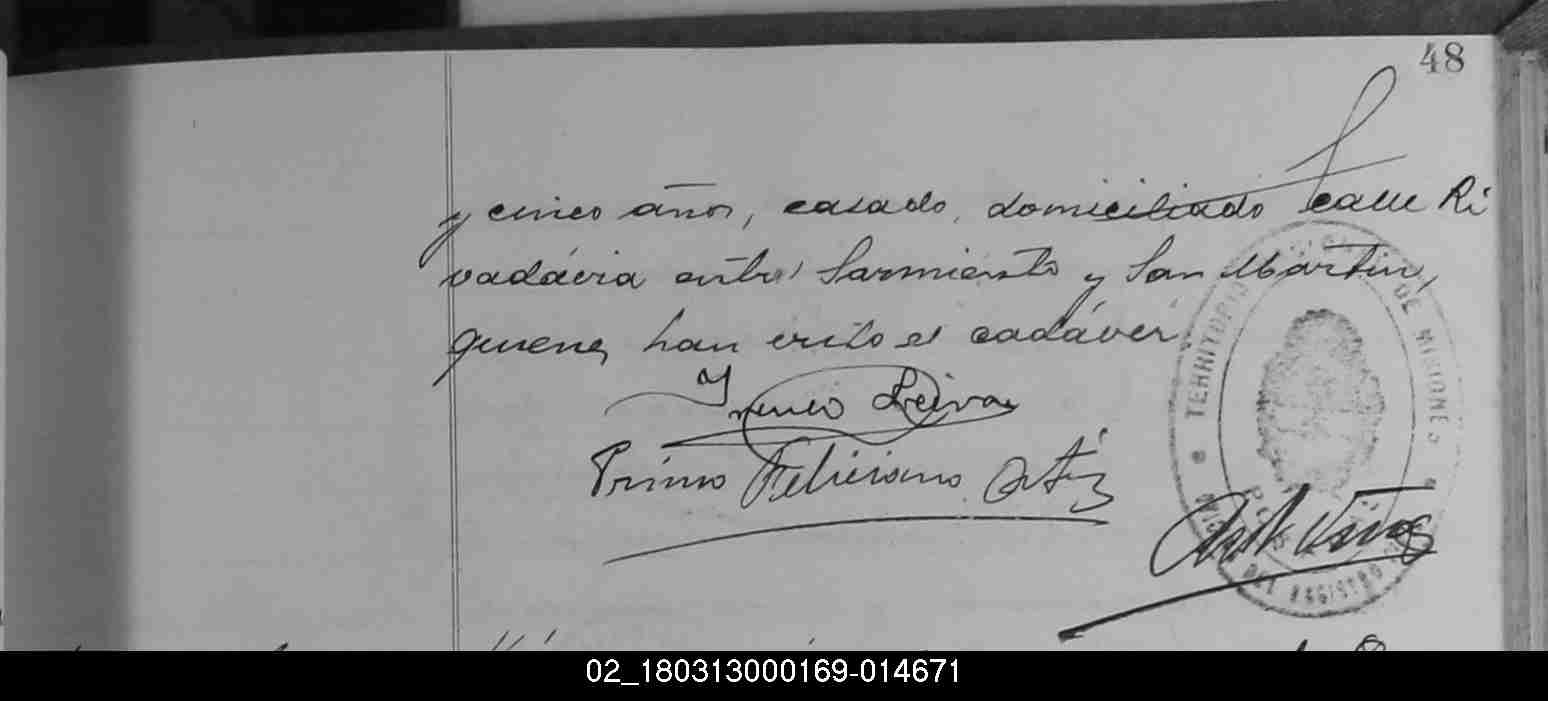 48
y cinco años, casado, domiciliado calle Ri
vadávia entre Sarmiento y San Martin,
quienes han visto el cadáver
Irineo Leiva
Primo Feliciano Ortíz
TERRITORIO NACIONAL DE MISIONES
DEL REGISTRO
02_180313000169-014671